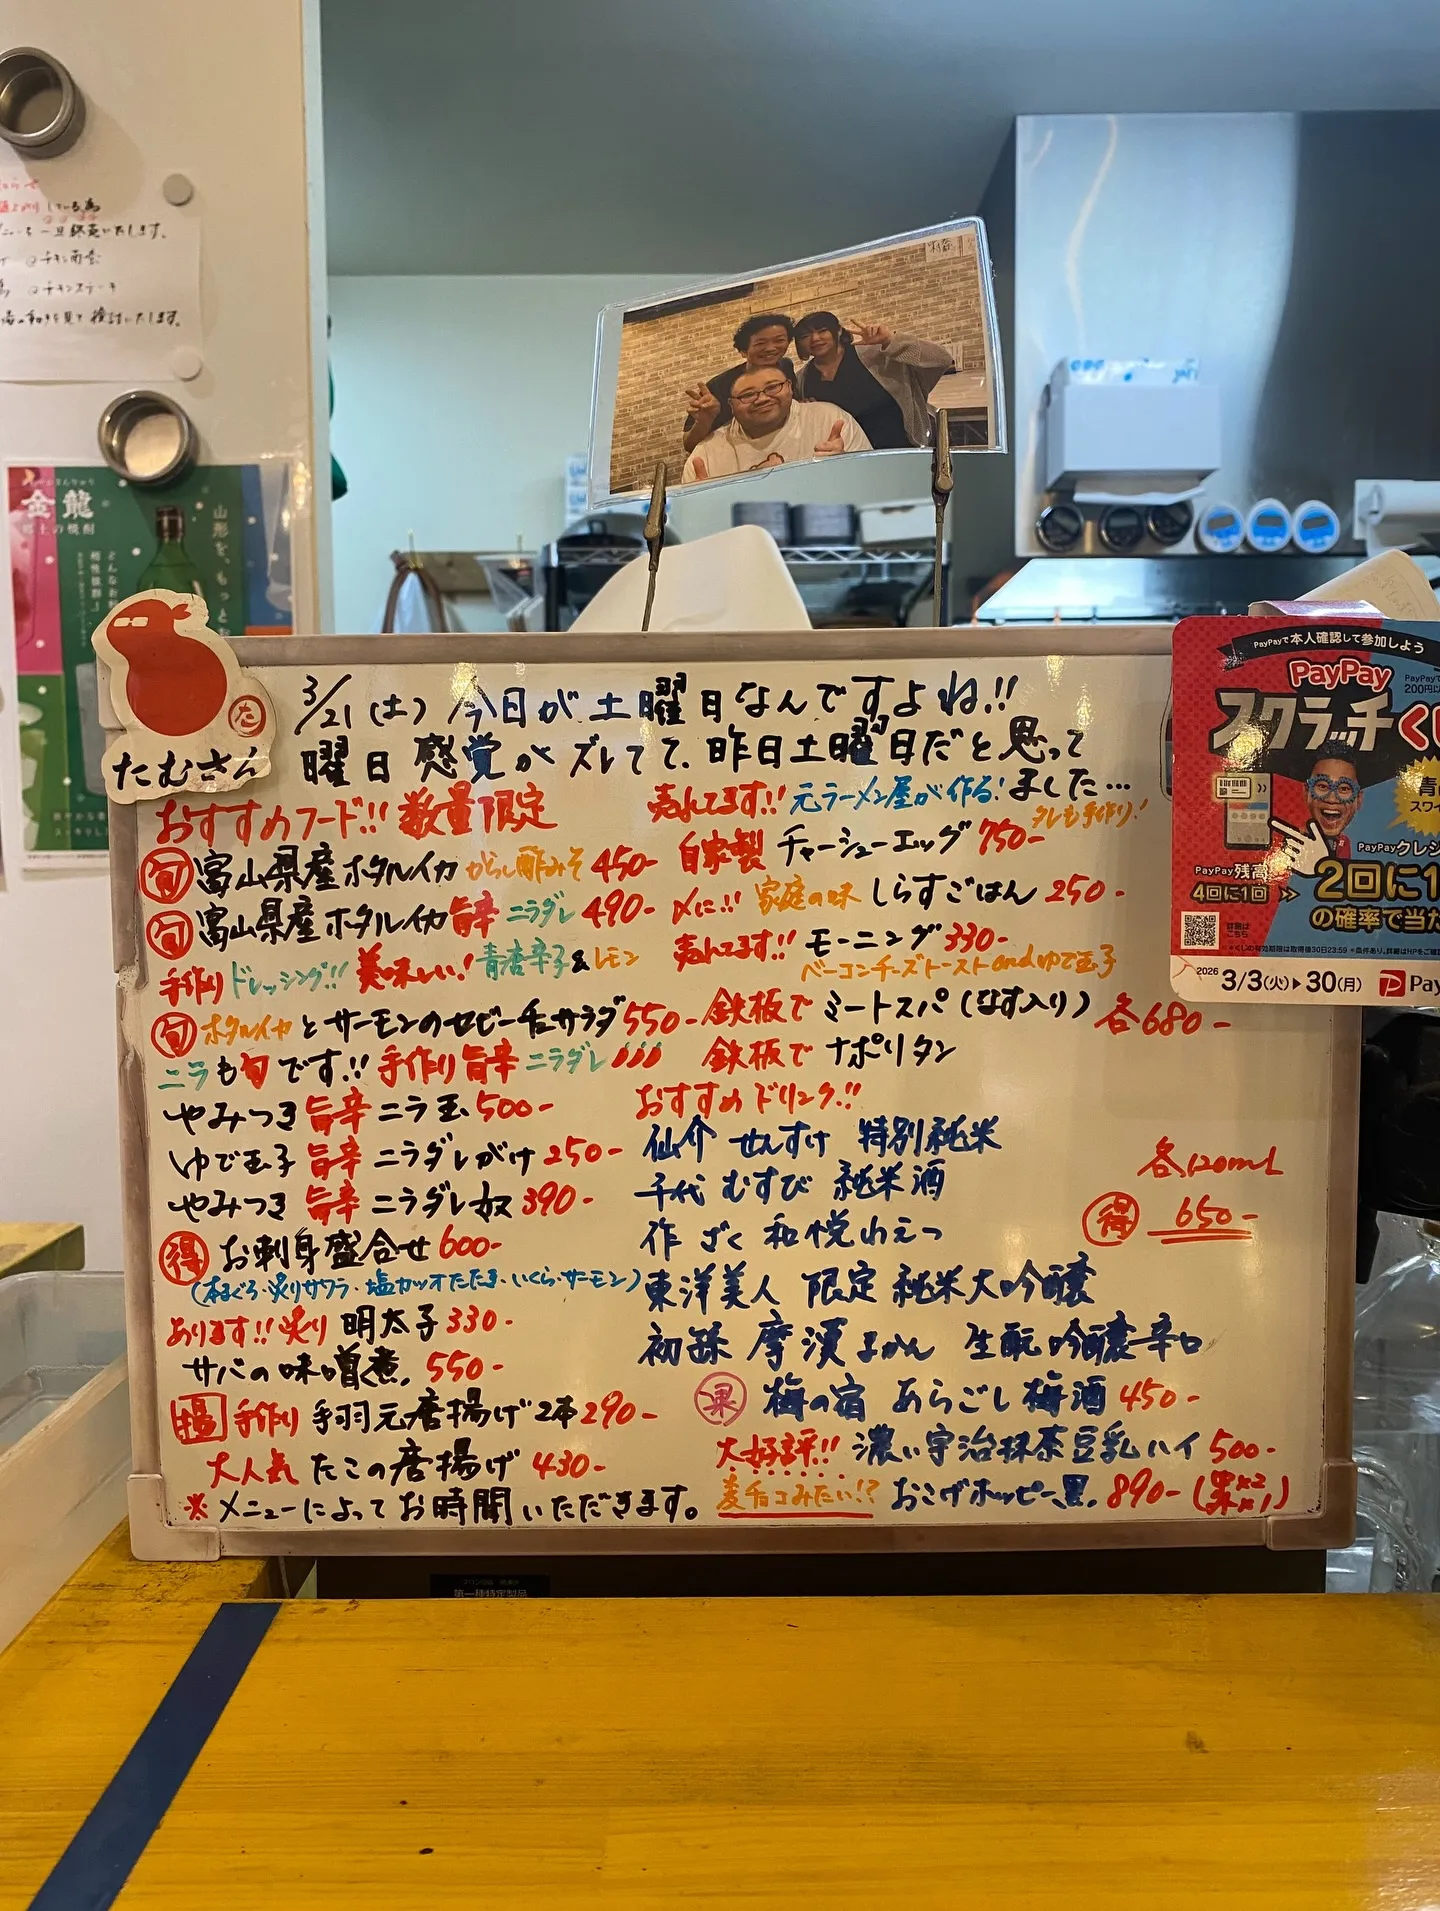 金龍
郷土の焼酎
山形を、もっと
たむさん
た
3/21(土) 今日が土曜日なんですよね!!
曜日感覚がズレてて、昨日土曜日だと思って
ました…
おすすめフード!! 数量限定
旬 富山県産ホタルイカ からし酢みそ 450-
旬 富山県産ホタルイカ旨辛ニラダレ 490-
手作りドレッシング!! 美味しい! 青唐辛子&レモン
旬 ホタルイカとサーモンのセビーチェサラダ 550-
ニラも旬です!! 手作り旨辛ニラダレ
やみつき旨辛ニラ玉 500-
ゆで玉子旨辛ニラダレがけ 250-
やみつき旨辛ニラダレ奴 390-
得 お刺身盛合せ 600-
(本まぐろ・炙りサワラ・塩カツオたたき・いくら・サーモン)
あります!! 炙り明太子 330-
サバの味噌煮 550-
揚 手作り 手羽元唐揚げ2本 290-
大人気 たこの唐揚げ 430-
※メニューによってお時間いただきます。
売れてます!! 元ラーメン屋が作る!
タレも手作り!
自家製 チャーシューエッグ 750-
〆に!! 家庭の味 しらすごはん 250-
売れてます!! モーニング 330-
ベーコンチーズトーストandゆで玉子
鉄板で ミートスパ(なす入り)
鉄板で ナポリタン
各680-
おすすめドリンク!!
仙介 せんすけ 特別純米
千代むすび 純米酒
作 ざく 和悦 わえつ
東洋美人 限定 純米大吟醸
初孫 摩漢 まかん 生酛吟醸辛口
各120mL
得 650-
果 梅の宿 あらごし梅酒 450-
大好評!! 濃い宇治抹茶豆乳ハイ 500-
麦チョコみたい!? おこげホッピー黒 890-
PayPayで本人確認して参加しよう
PayPay
スクラッチくじ
200円
PayPay残高
4回に1回
PayPayクレジ
2回に1
の確率で当た
詳細はこちら
2026 3/3(火)▶30(月)
Pay
第一種特定製品